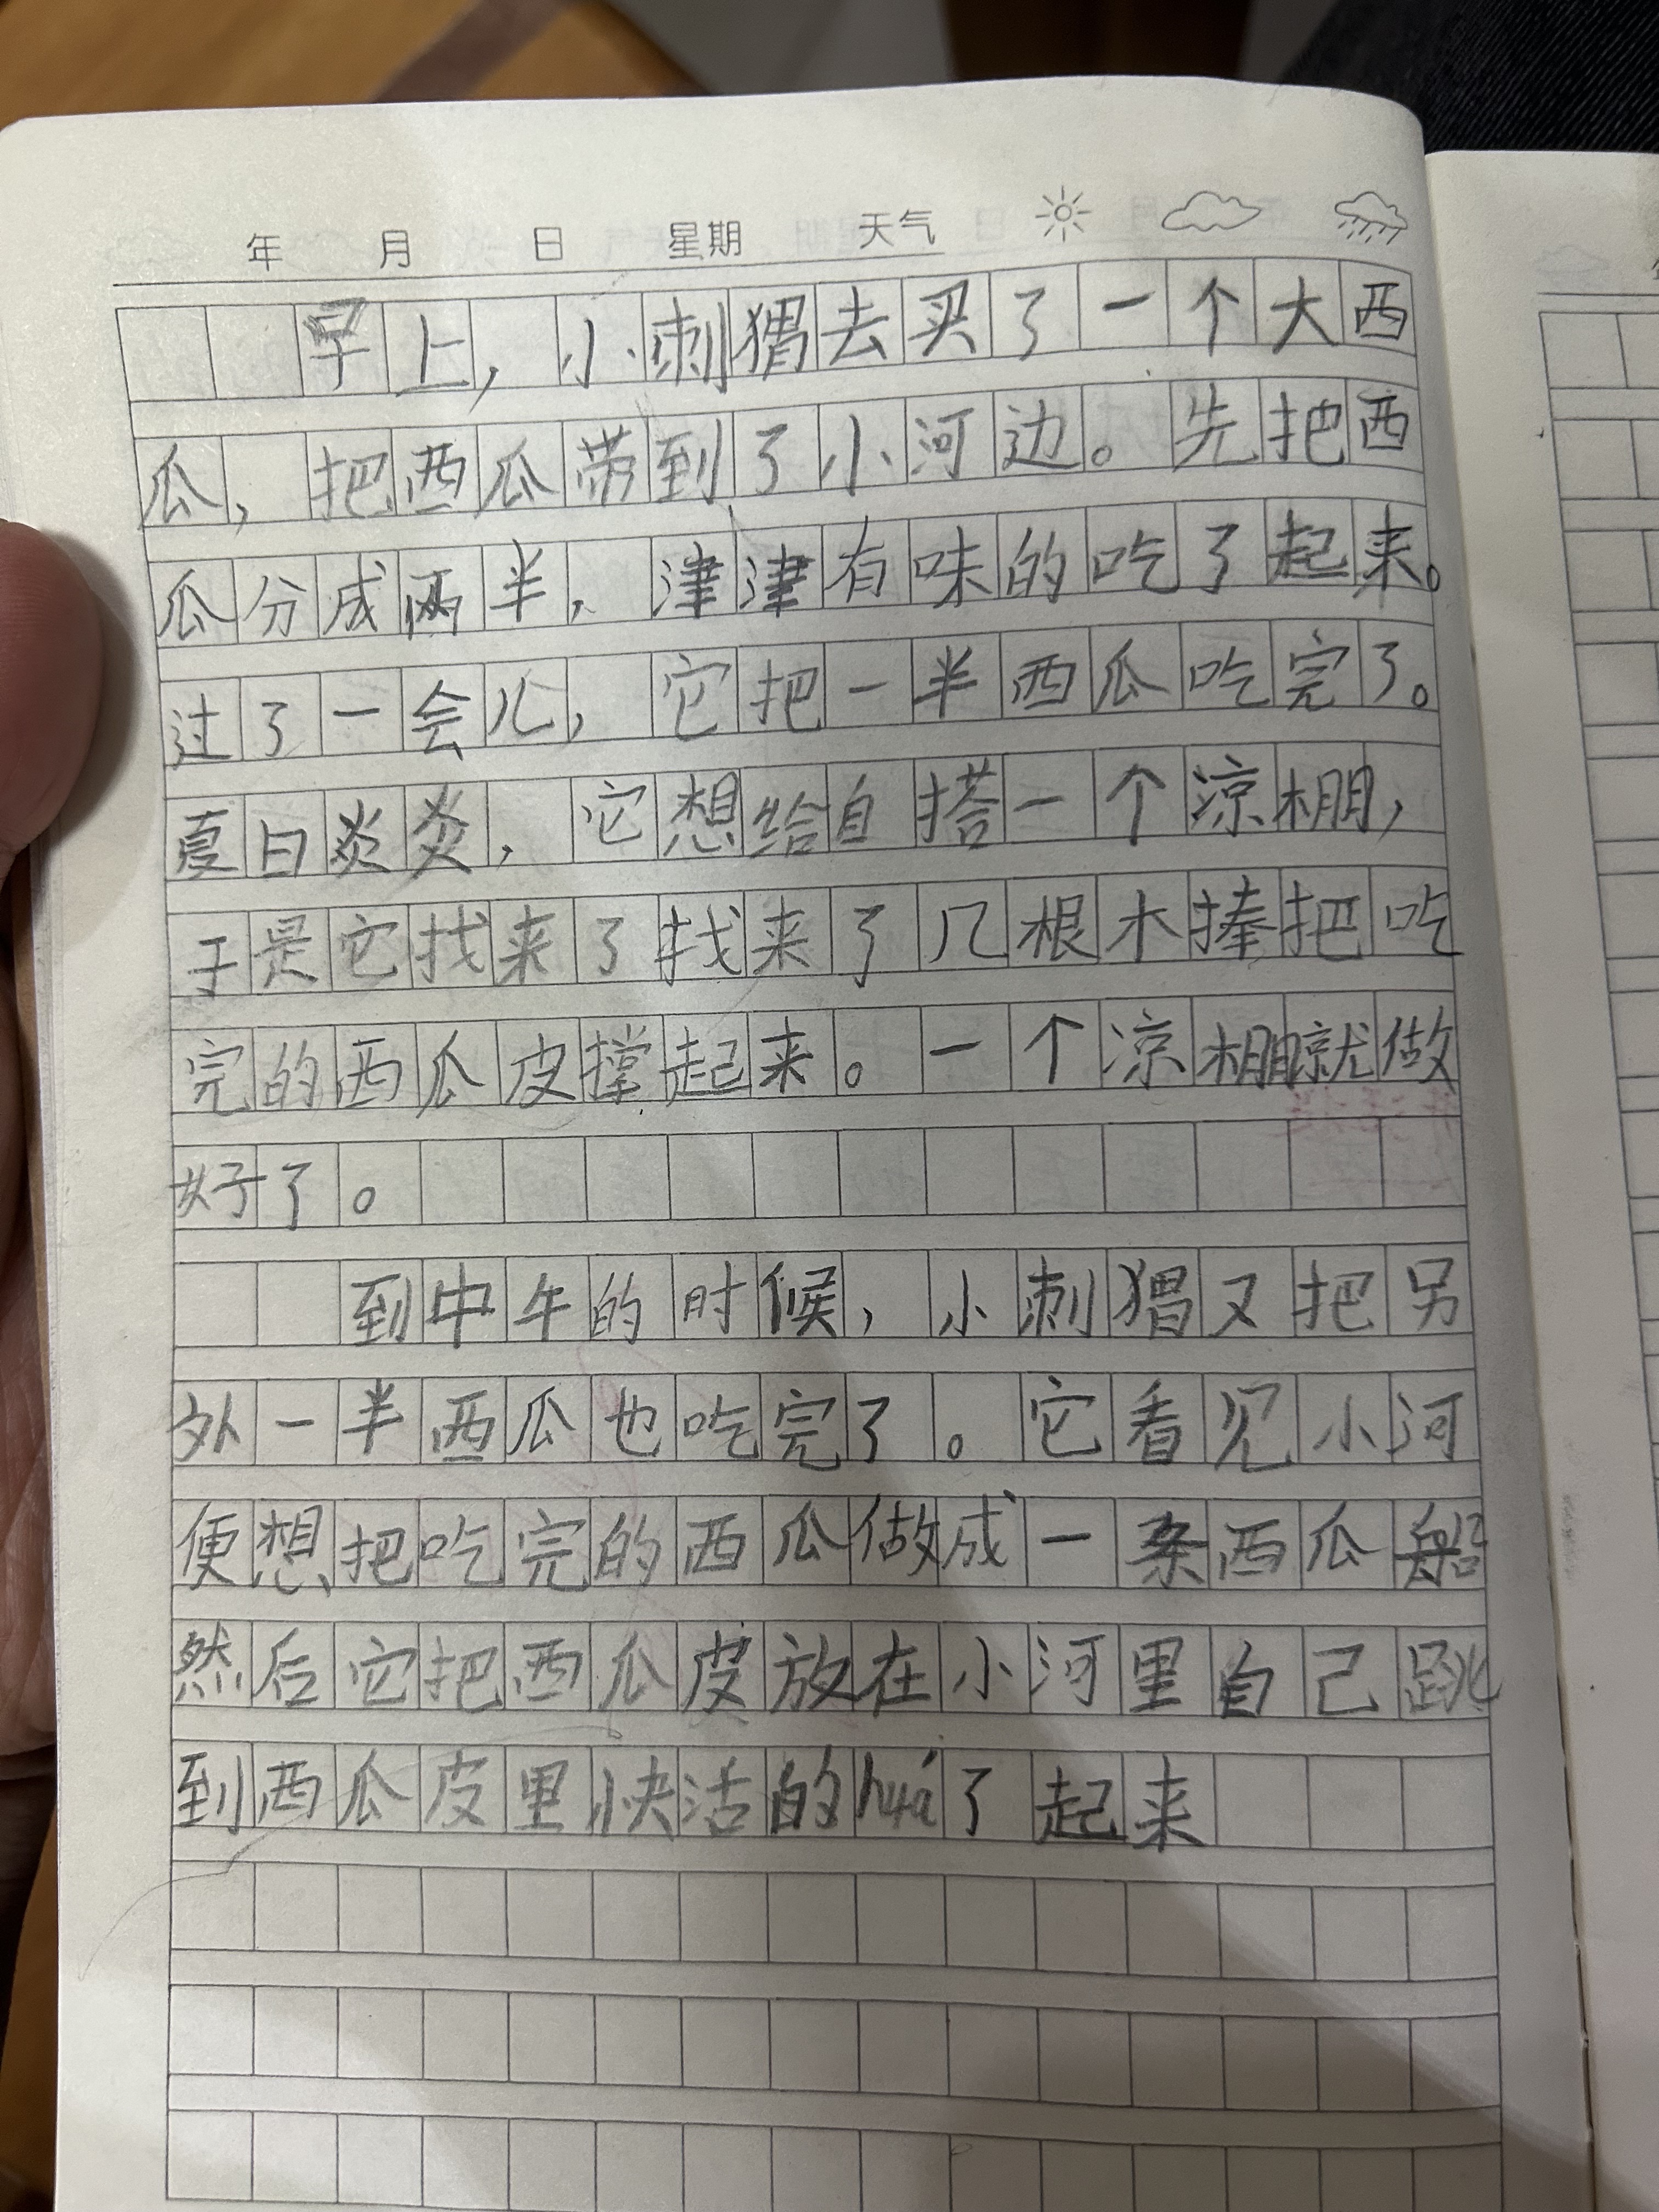 年 月 日 星期 天气
早上，小刺猬去买了一个大西
瓜，把西瓜带到了小河边。先把西
瓜分成两半，津津有味的吃了起来。
过了一会儿，它把一半西瓜吃完了。
夏日炎炎，它想给自搭一个凉棚，
于是它找来了找来了几根木捧把吃
完的西瓜皮撑起来。一个凉棚就做
好了。
到中午的时候，小刺猬又把另
外一半西瓜也吃完了。它看见小河
便想把吃完的西瓜做成一条西瓜船
然后它把西瓜皮放在小河里自己跳
到西瓜皮里快活的huá了起来